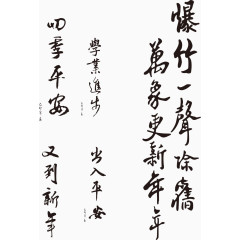 爆竹一聲除舊
萬象更新年年
學業進步
出入平安
四季平安
又到新年